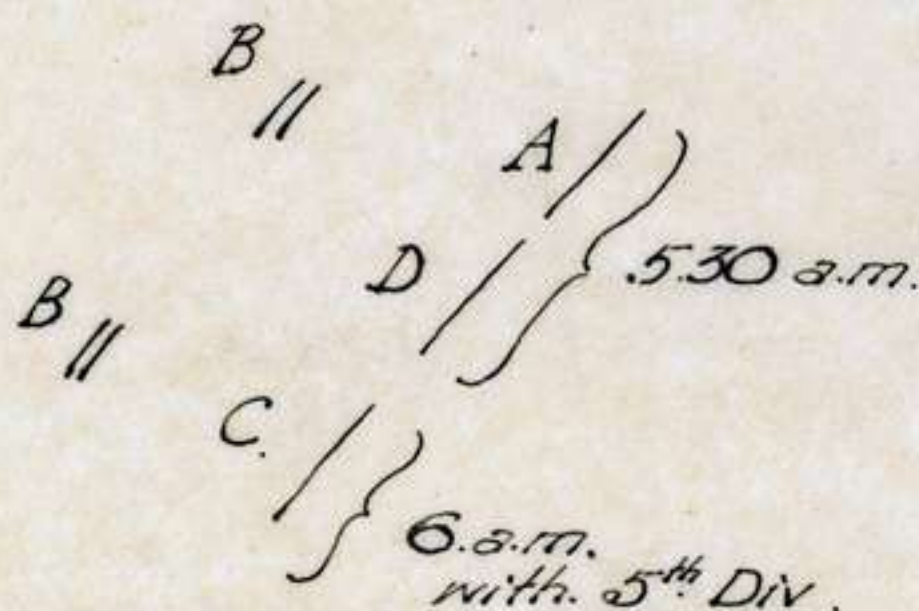 B
A
D
.5.30 a.m.
B
C.
6.a.m.
with. 5th Div.